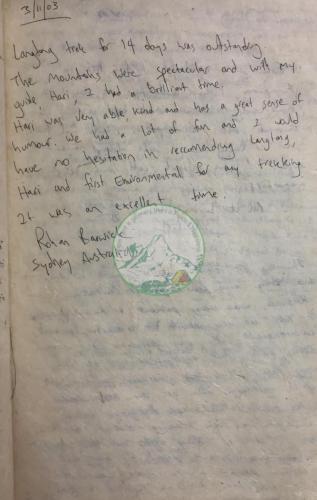 3/11/03
Langtang trek for 14 days was outstanding.
The mountains were spectacular and with my
guide, Hari, I had a brilliant time.
Hari was very able kind and has a great sense of
humour. We had a lot of fun and I would
have no hesitation in recommending Langtang,
Hari and first Environmental for any trekking.
It was an excellent time.
Rohan
Sydney Australia